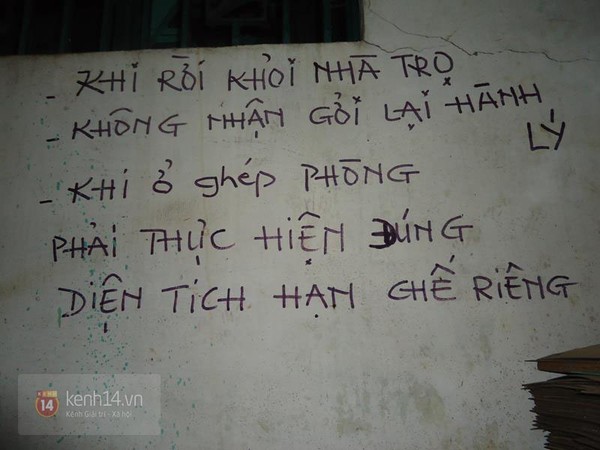 - KHI RỜI KHỎI NHÀ TRỌ
- KHÔNG NHẬN GỞI LẠI HÀNH
LÝ
- KHI Ở ghép PHÒNG
PHẢI THỰC HIỆN ĐÚNG
DIỆN TÍCH HẠN CHẾ RIÊNG
14
kenh14.vn
Kênh Giải trí - Xã hội